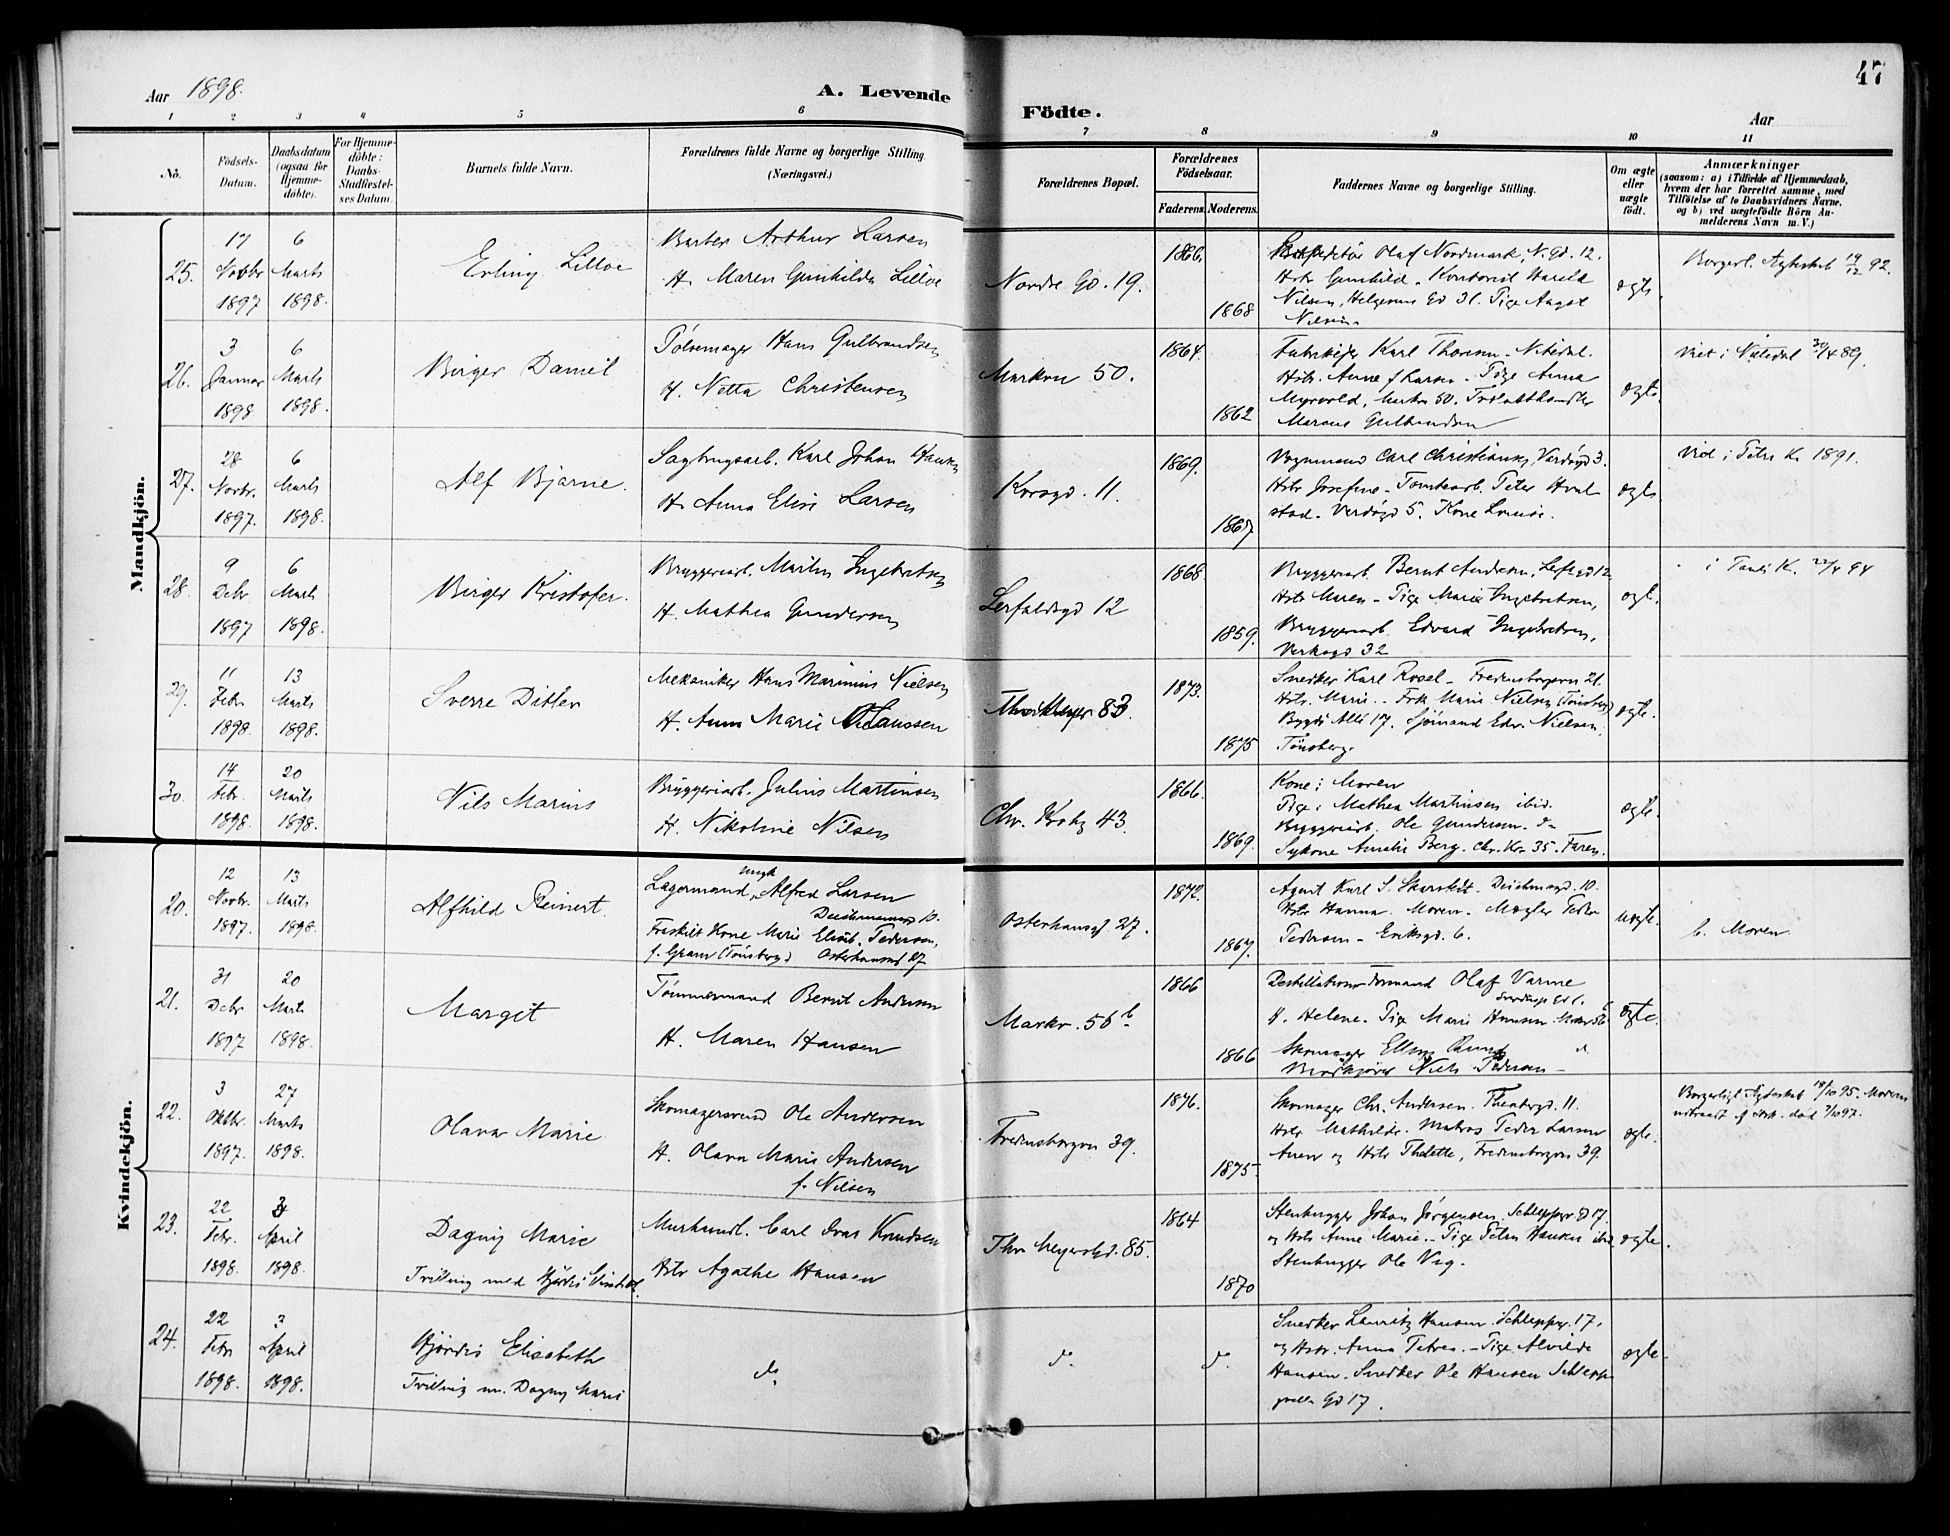 47
Aar 1898.
A. Levende Födte.
Aar
1 2 3 4 5 6 7 8 9 10 11
No.
Födsels-
Datum.
Daabsdatum
(ogsaa för
Hjemme-
döbte).
For Hjemme-
döbte:
Daabs-
Stadfæstel-
ses Datum.
Barnets fulde Navn.
Forældrenes fulde Navne og borgerlige Stilling.
(Næringsvei.)
Forældrenes Bopæl.
Forældrenes
Födselsaar.
Faderens.
Moderens.
Faddernes Navne og borgerlige Stilling.
Om ægte
eller
uægte
födt.
Anmærkninger
(saasom: a) i Tilfælde af Hjemmedaab,
hvem der har forrettet samme, med
Tilföielse af to Daabsvidners Navne,
og b) ved uægtefödte Börn An-
melderens Navn m. V.)
Mandkjön.
25.
17 Novbr 1897
6 Marts 1898.
Erling Lilloe
Barber Arthur Larsen
H. Maren Gunhilda Lilloe
Nordre Gd. 19.
1866.
1868
Olaf Nordmark, N. Gd. 12.
Hstr Gunhild. Kontorist Harald
Nilsen, Helgesens Gd 31. Pige Aagot
Nilsen
ægte
Borgerl. Ægteskab 19/12 92.
26.
3 Januar 1898
6 Marts 1898.
Birger Daniel
Pölsemager Hans Gulbrandsen
H. Netta Christensen
Markvn 50.
1864.
1862
Karl Thoresen - Nitedal.
Hstr. Anne f. Larsen - Pige Anna
Myrvold, Markv 50.
Marcus Gulbrandsen
ægte
Viet i Nitedal 30/4 89.
27.
28 Novbr. 1897.
6 Marts 1898.
Alf Bjarne.
Sagbrugsarb. Karl Johan
H. Anna Elise Larsen
Korsgd. 11.
1869.
1867
Vognmand Carl Christiansen, 3.
Hstr Josefine - Tomtearb. Peter
stad - 5. Kone Louise.
ægte
Vid i Petri K. 1891.
28.
9 Debr 1897
6 Marts 1898.
Birger Kristofer.
Bryggeriarb. Martin Ingebretsen
H. Mathea Gundersen
Lerfaldsgd 12
1868.
1859.
Bryggeriarb. Bernt Andersen, Lerfgd 12
Hstr Maren - Pige Marie Ingebretsen,
Bryggeriarb. Edvard Ingebretsen,
Verksgd 32
ægte.
i Pauli K. 94
29.
11 Febr 1898.
13 Marts 1898.
Sverre Ditlev
Mekaniker Hans Marinius Nielsen
H. Anna Marie Claussen
Thv Meyer 83.
1873.
1875
Snedker Karl Rosel - Fredensborgvn 21.
Hstr. Marie. - Frk Marie Nielsen (Tönsberg)
Bygdö Allé 17. Sjömand Edv. Nielsen,
Tönsberg.
ægte.
30.
14 Febr. 1898.
20 Marts 1898.
Nils Marius
Bryggeriarb. Julius Martinsen
H. Nikoline Nilsen
Chr. Krohg 43.
1866.
1869.
Kone: Moren
Pige: Mathea Martinsen ibid.
Bryggeriarb. Ole Gundersen. do
Sykone Amalie Berg. Chr. Kr. 35. Faren.
ægte.
Kvindekjön.
20.
12 Novbr. 1897.
13 Marts 1898.
Alfhild Reinert.
Lagermand, Ungk Alfred Larsen
Deichmansgd 10.
Fraskilt Kone Marie Elisab. Pedersen,
f. Gram (Tönsberg) Osterhausgd 27
Osterhausgd 27.
1872.
1867.
Agent Karl S. Skarstedt - Deichmsgd. 10.
Hstr Hanna. Moren. Mægler Peder
Pedersen - Eriksgd. 6.
uægte.
b. Moren
21.
31 Debr 1897
20 Marts 1898.
Margit
Tömmermand Bernt Andersen
H. Maren Hansen
Markv. 56 b.
1866
1866
Destillationsformand Olaf Varme
H. Helene. Pige Marie Hansen Markv 56 b
Skomager
Niels Pedersen
ægte.
22.
3 Oktbr. 1897.
27 Marts 1898.
Olava Marie
Skomagersvend Ole Andersen
H. Olava Marie Andersen
f. Nilsen
Fredensborgvn 39.
1876.
1875.
Skomager Chr. Andersen. 11.
Hstr Mathilde. Matros Peder Larsen
og Hstr Thalette, Fredensborgvn 39.
ægte.
Borgerligt Ægteskab 95. Moren
død 97.
23.
22 Febr. 1898.
3 April 1898.
Dagny Marie
Tvilling med Hjördis Elisabeth
Murhandl. Carl Ivar Knudsen
Hstr Agathe Hansen
Thv Meyersgd. 85.
1864
1870
Stenhugger Johan Jörgensen, Schleppgr Gd 17.
og Hstr Anne Marie. Pige Petra Hansen ibid
Stenhugger Ole Vig.
ægte.
24.
22 Febr 1898.
3 April 1898.
Hjördis Elisabeth
Tvilling m. Dagny Marie
do
do.
do.
Snedker Lauritz Hansen. Schleppgr. 17.
og Hstr. Anna Petrea - Pige Alvilde
Hansen. Snedker Ole Hansen Schlepp-
grells Gd 17.
ægte.